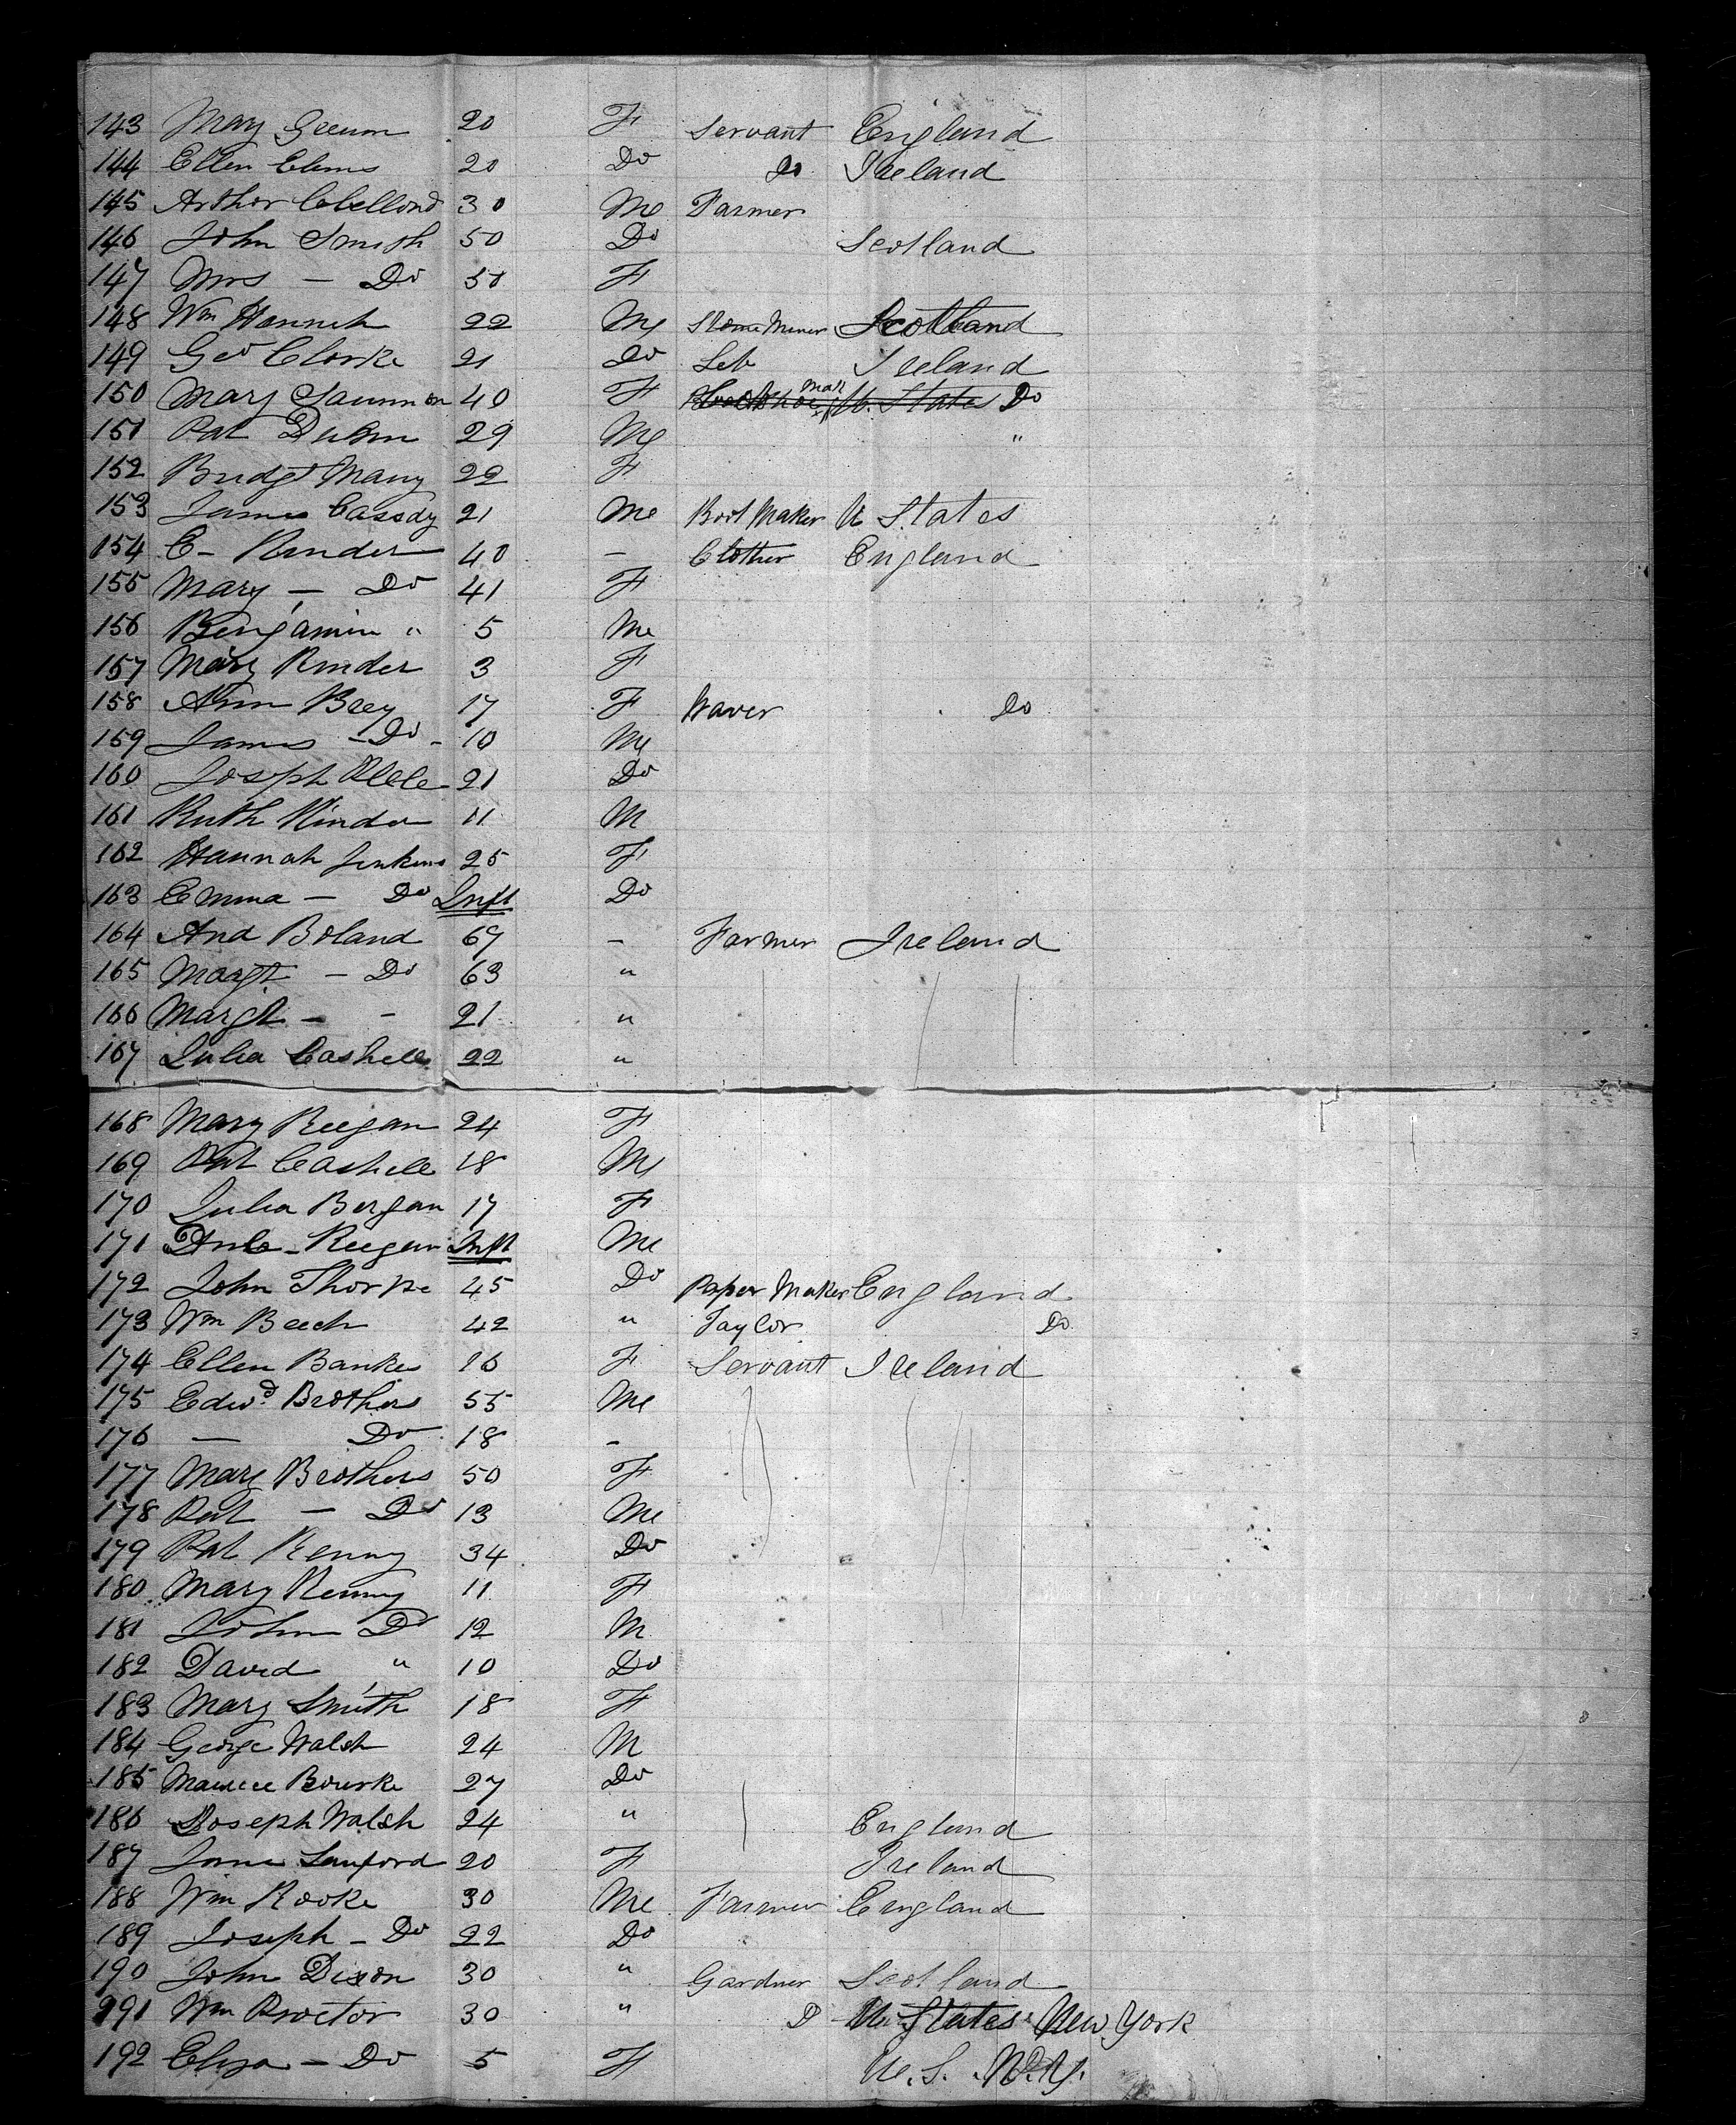 143 Mary Greum 20 F Servant England
144 Ellen Clems 20 Do Do Ireland
145 Arthor Clellond 30 Me Farmer
146 John Smith 50 Do Scotland
147 Mrs — Do 50 F
148 Wm Hannah 22 Me Stone Miner Scotland
149 Geo Clorke 21 Do Lab Ireland
150 Mary Saunmon 40 F U. States Do
151 Pat 29 Me "
152 Bridgt Many 22 F
153 James Cassdy 21 Me Boot Maker U States
154 C - Rinder 40 — Clother England
155 Mary — Do 41 F
156 Bengamin " 5 Me
157 Mary Rinder 3 F
158 Ann Brey 17 F Waver Do
159 James - Do - 10 Me
160 Joseph 21 Do
161 Ruth 11 M
162 Hannah Jenkins 25 F
163 Emma — Do Inft Do
164 And Boland 67 — Farmer Ireland
165 Margt. — Do 63 "
166 Margt — - 21 "
167 Julia Cashell 22 "
168 Mary Reegan 24 F
169 Pat Cashell 18 Me
170 Julia Bergan 17 F
171 Reegan Inft Me
172 John Thorpe 45 Do Paper Maker England
173 Wm Beech 42 " Taylor Do
174 Ellen Banks 16 F Servant Ireland
175 Edwd Brothers 55 Me
176 — Do 18 -
177 Mary Brothers 50 F
178 Pat — Do 13 Me
179 Pat Kenny 34 Do
180 Mary Kenny 11 F
181 John Do 12 M
182 David " 10 Do
183 Mary Smith 18 F
184 George Walsh 24 M
185 Maurice Bourke 27 Do
186 Joseph Walsh 24 " England
187 Jane Sanford 20 F Ireland
188 Wm Rooke 30 Me Farmer England
189 Joseph — Do 22 Do
190 John Dixon 30 " Gardner Scotland
191 Wm Proctor 30 " D U. States New York
192 Eliza — Do 5 F U. S. N.Y.